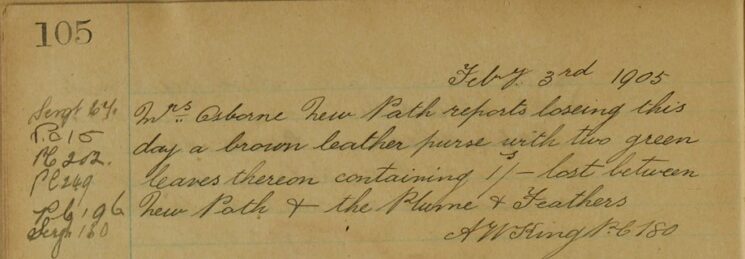 105
Feby. 3rd 1905
Sergt 67.
P.C 15
PC 202.
PC 249
P C 196
Sergt 180
Mrs Osborne New Path reports loseing this
day a brown leather purse with two green
leaves thereon containing 1s/- lost between
New Path & the Plume & Feathers
A W King P.C 180